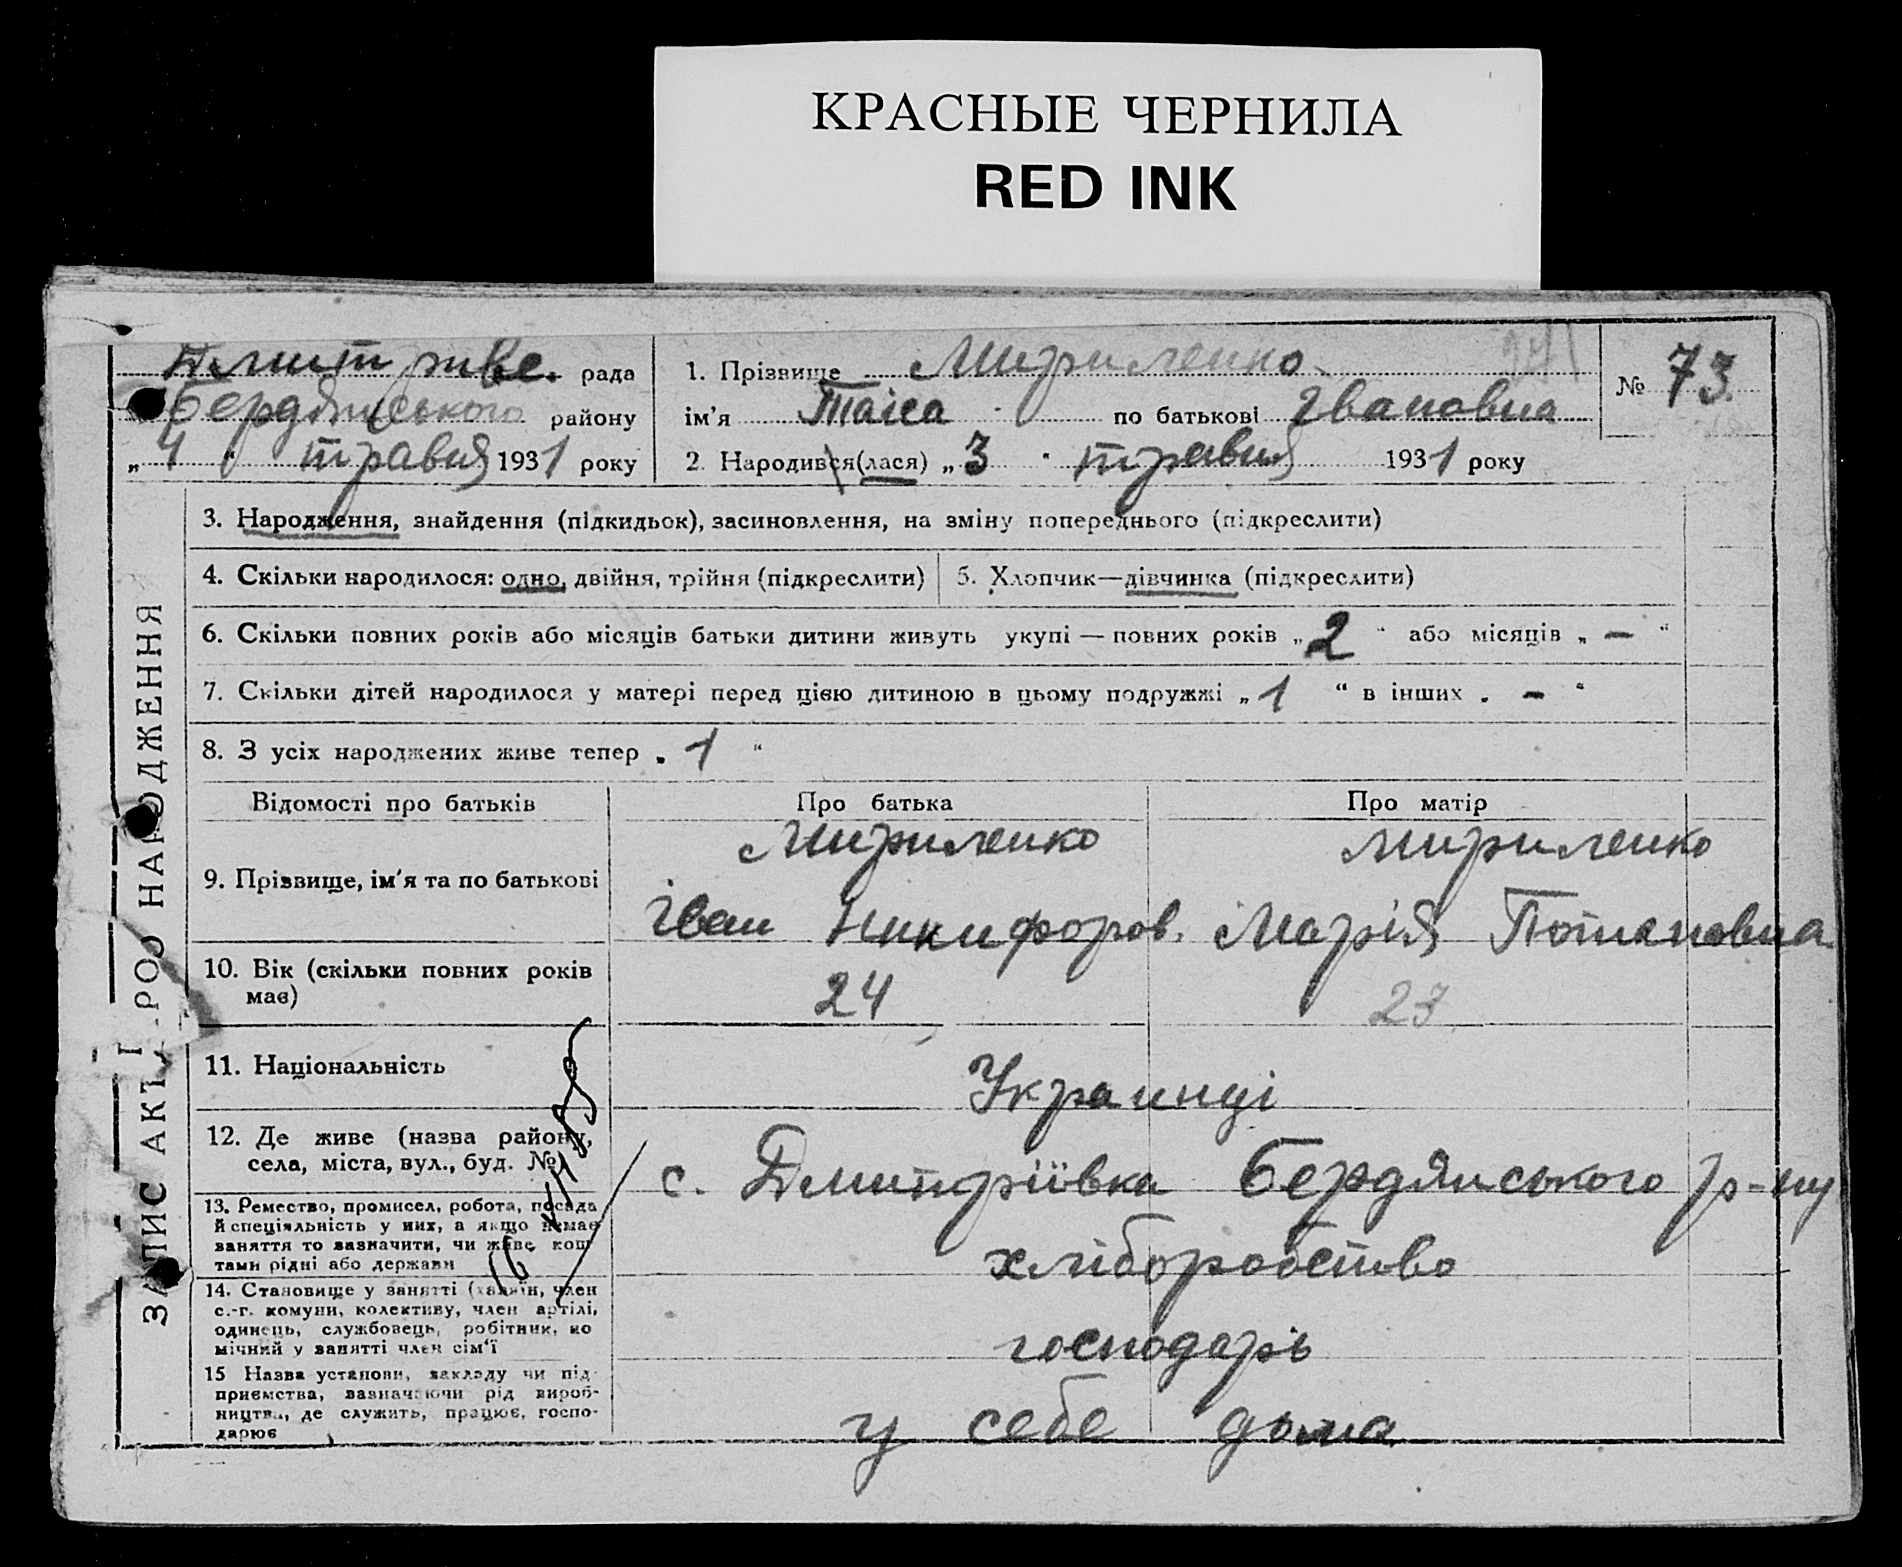 КРАСНЫЕ ЧЕРНИЛА
RED INK
Дмитриве. рада
Бердянського району
„ 4 “ травня 1931 року
1. Прізвище Мириленко
ім'я Таіса по батькові Івановна
№ 73
2. Народився(лася) „ 3 “ травня 1931 року
ЗАПИС АКТ ПРО НАРОДЖЕННЯ
3. Народження, знайдення (підкидьок), засиновлення, на зміну попереднього (підкреслити)
4. Скільки народилося: одно, двійня, трійня (підкреслити)
5. Хлопчик—дівчинка (підкреслити)
6. Скільки повних років або місяців батьки дитини живуть укупі — повних років „ 2 “ або місяців „ — “
7. Скільки дітей народилося у матері перед цією дитиною в цьому подружжі „ 1 “ в інших „ — “
8. З усіх народжених живе тепер „ 1 “
Відомості про батьків
Про батька
Про матір
9. Прізвище, ім'я та по батькові
Мириленко
Іван Никифоров.
Мириленко
Марія Потаповна
10. Вік (скільки повних років має)
24
23
11. Національність
Украинці
12. Де живе (назва району,
села, міста, вул., буд. №
с. Дмитріївка Бердянського р-ну
13. Ремество, промисел, робота, посада
й спеціяльність у них, а якщо немає
заняття то зазначити, чи живе кош
тами рідні або держави
хліборобство
14. Становище у занятті (хазяїн, член
с.-г. комуни, колективу, член артілі,
одинець, службовець, робітник, по
мічний у занятті член сім'ї
господарь
15 Назва установи, закладу чи під
приємства, зазначаючи рід вироб-
ництва, де служить, працює, госпо-
дарює
у себе дома